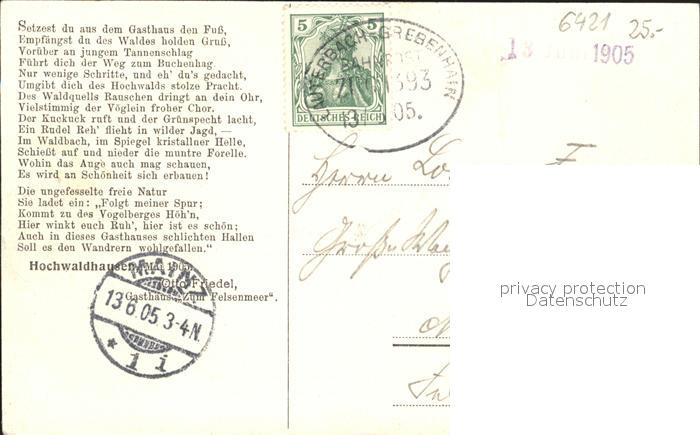 Setzest du aus dem Gasthaus den Fuß,
Empfängst du des Waldes holden Gruß,
Vorüber an jungem Tannenschlag
Führt dich der Weg zum Buchenhag.
Nur wenige Schritte, und eh' du's gedacht,
Umgibt dich des Hochwalds stolze Pracht.
Des Waldquells Rauschen dringt an dein Ohr,
Vielstimmig der Vöglein froher Chor.
Der Kuckuck ruft und der Grünspecht lacht,
Ein Rudel Reh' flieht in wilder Jagd, —
Im Waldbach, im Spiegel kristallner Helle,
Schießt auf und nieder die muntre Forelle.
Wohin das Auge auch mag schauen,
Es wird an Schönheit sich erbauen!
Die ungefesselte freie Natur
Sie ladet ein: „Folgt meiner Spur;
Kommt zu des Vogelberges Höh'n,
Hier winkt euch Ruh', hier ist es schön;
Auch in dieses Gasthauses schlichten Hallen
Soll es den Wandrern wohlgefallen.“
Hochwaldhausen, Mai 1905.
Otto Friedel,
Gasthaus „Zum Felsenmeer“.
MAINZ
13.6.05.3-4N.
* 1 i
5 5
DEUTSCHES REICH
LAUTERBACH GREBENHAIN
BAHNPOST
1393
13 05.
6421 25.-
1905
Herrn
privacy protection
Datenschutz